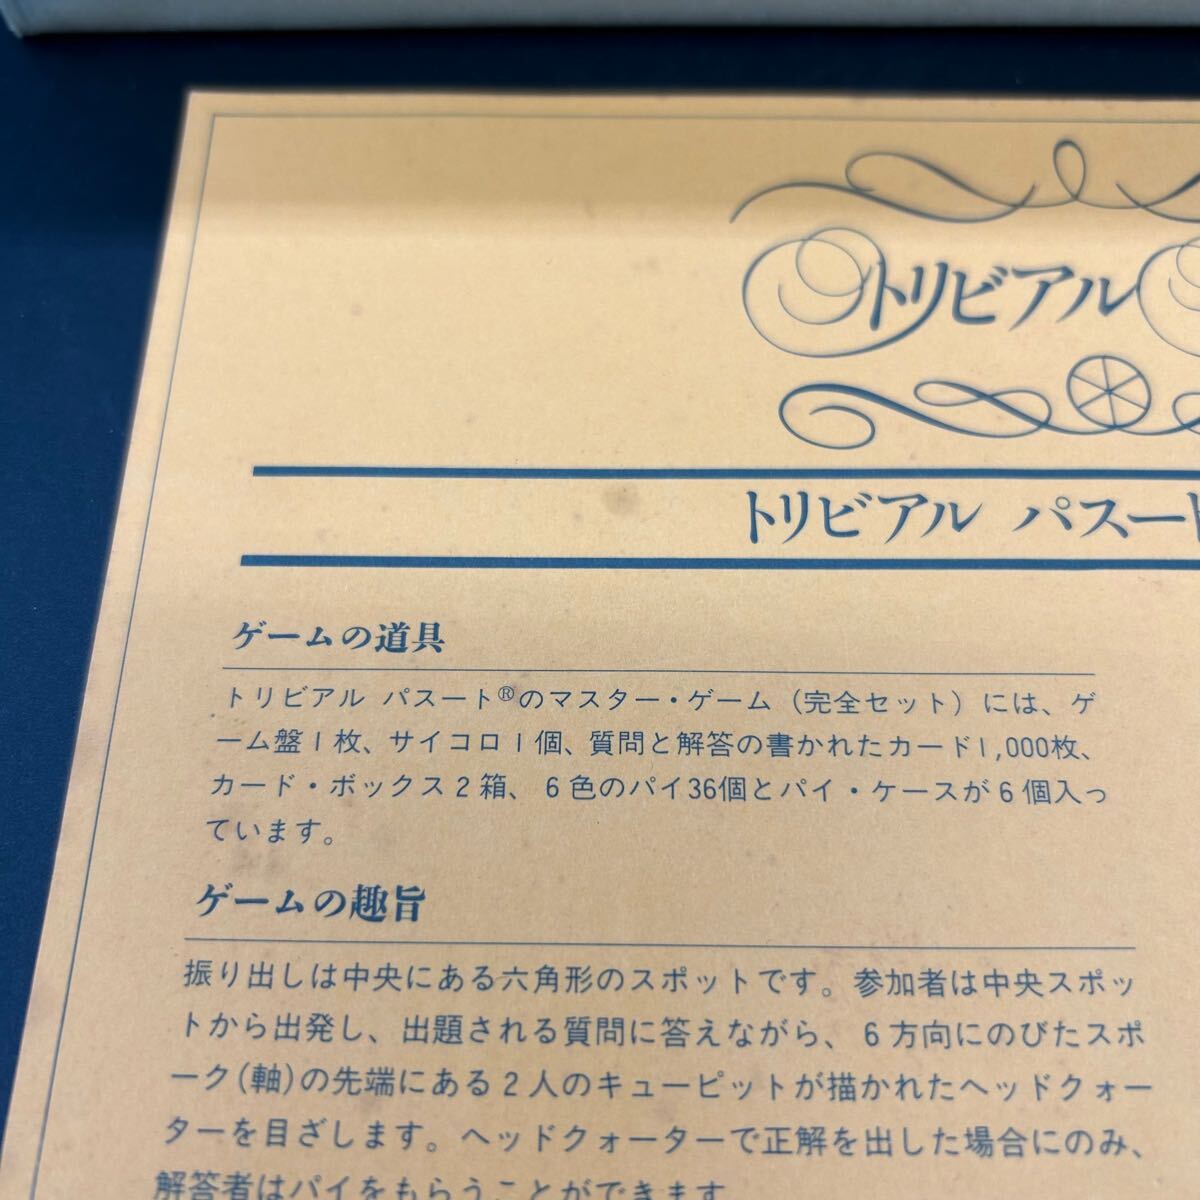 トリビアル
トリビアル パスート
ゲームの道具
トリビアル パスート®のマスター・ゲーム（完全セット）には、ゲ
ーム盤1枚、サイコロ1個、質問と解答の書かれたカード1,000枚、
カード・ボックス2箱、6色のパイ36個とパイ・ケースが6個入っ
ています。
ゲームの趣旨
振り出しは中央にある六角形のスポットです。参加者は中央スポッ
トから出発し、出題される質問に答えながら、6方向にのびたスポ
ーク(軸)の先端にある2人のキューピットが描かれたヘッドクォー
ターを目ざします。ヘッドクォーターで正解を出した場合にのみ、
解答者はパイをもらうことができます